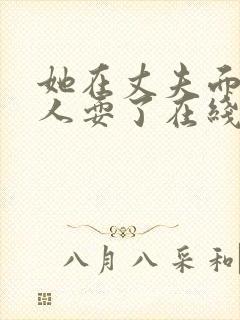 她在丈夫面
人耍了在线
八月八采和